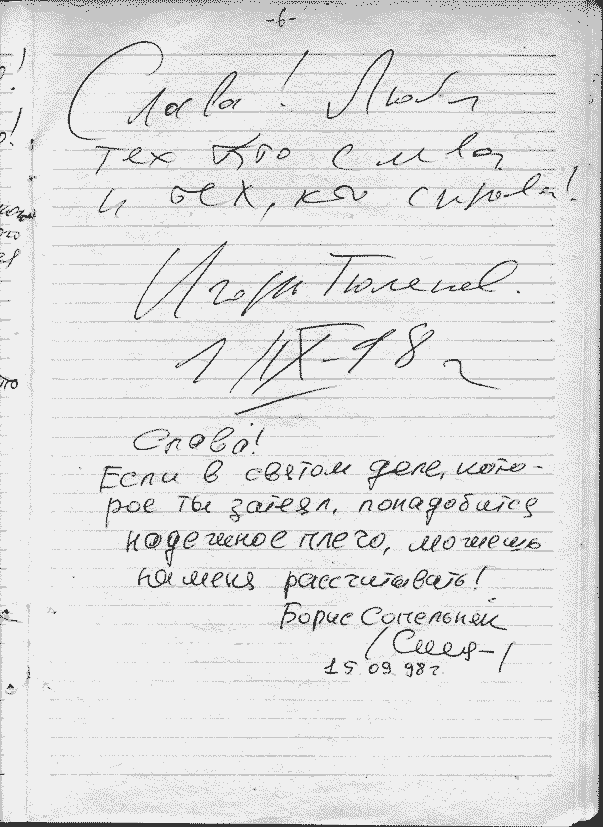 -6-
Слава! Люби
тех кто слева
и тех, кто справа!
Игорь Тюленев.
1/IX-98 г
Слава!
Если в святом деле, кото-
рое ты затеял, понадобится
надежное плечо, можешь
на меня рассчитывать!
Борис
15 09 98г